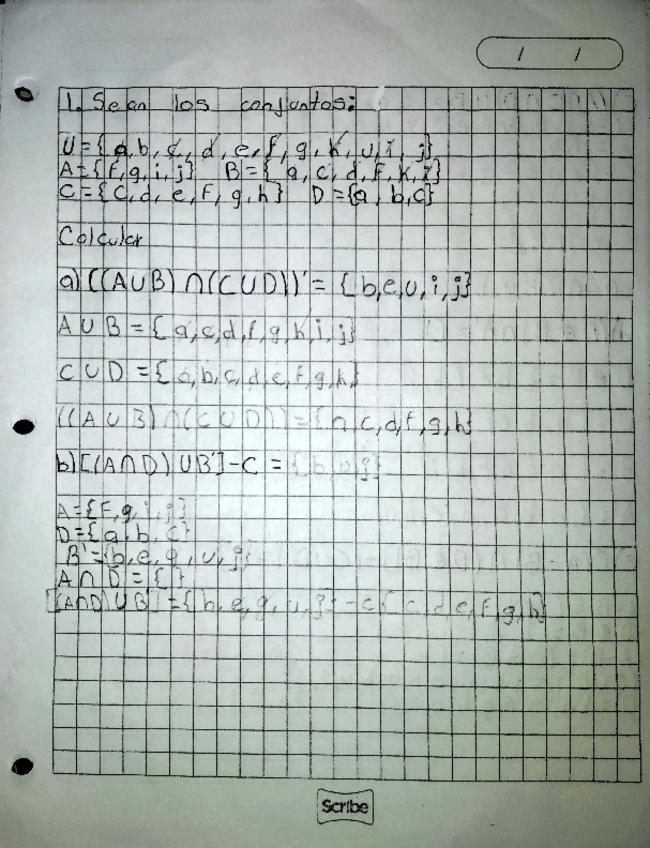 1. Sean los conjuntos:
U={a,b,c,d,e,f,g,h,u,i,j}
A={f,g,i,j} B={a,c,d,f,h,i}
C={c,d,e,f,g,h} D={a,b,c}
Calcular
a)((AUB)∩(CUD))'={b,e,u,i,j}
AUB={a,c,d,f,g,h,i,j}
CUD={a,b,c,d,e,f,g,h}
((AUB)∩(CUD))={a,c,d,f,g,h}
b)[(A∩D)UB']-C={b,u,j}
A={F,g,i,j}
D={a,b,c}
B'={b,e,g,u,j}
A∩D={ }
[(A∩D)UB']={b,e,g,u,j}-C{c,d,e,f,g,h}
Scribe